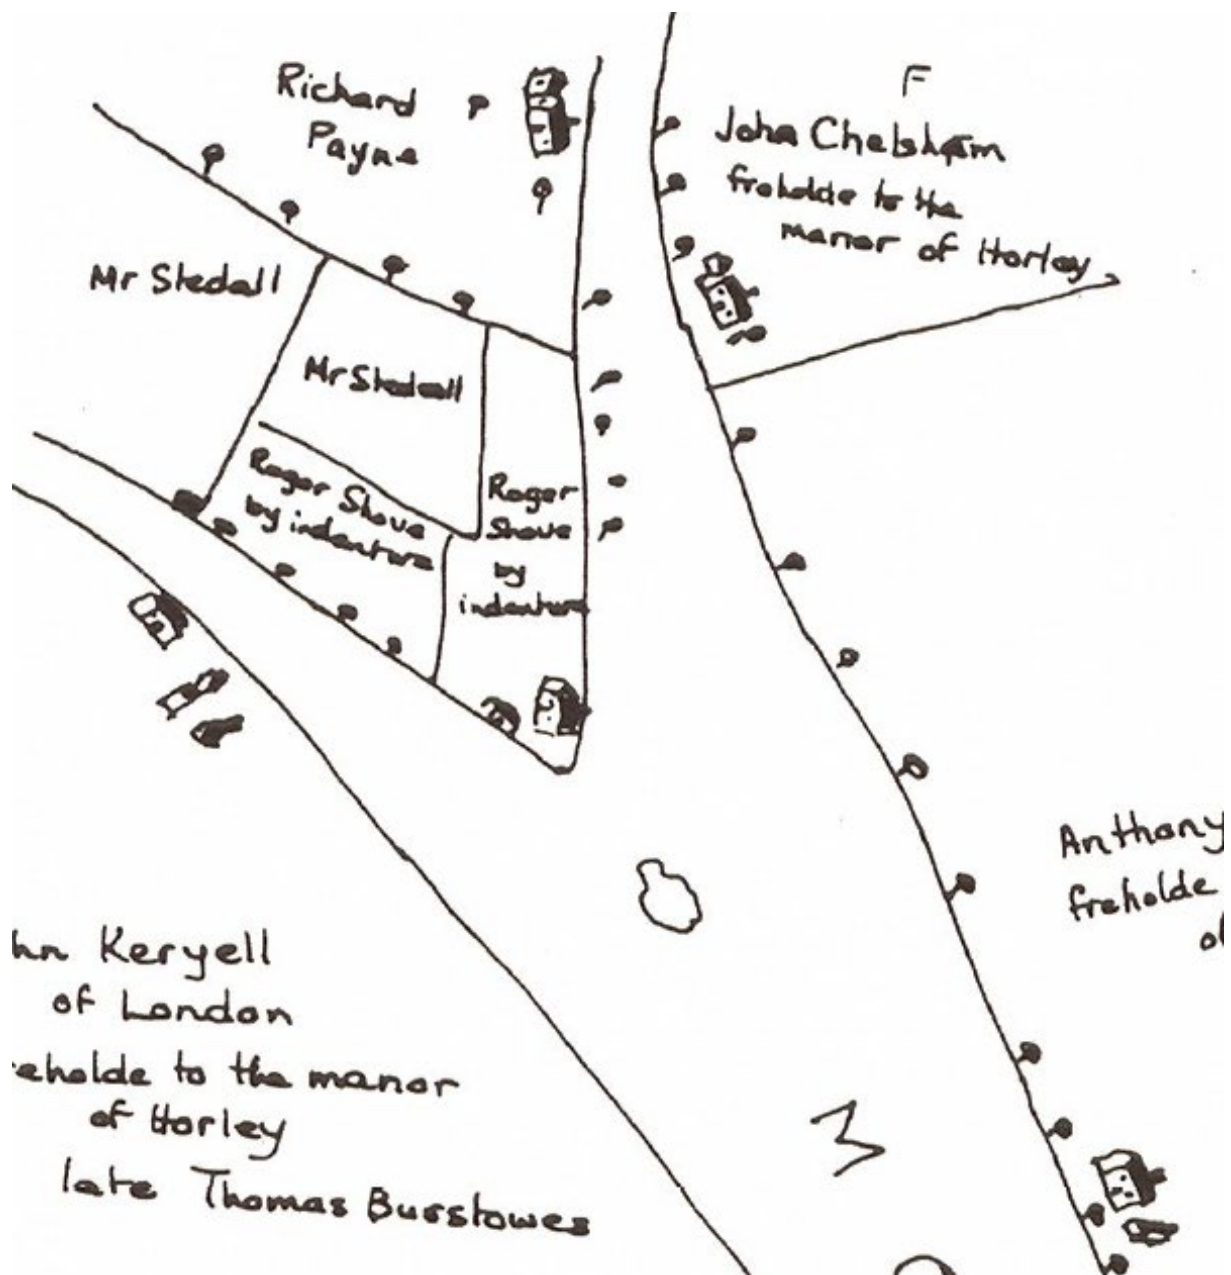 Richard
Payne
F
John Chelsham
freholde to the
manor of Horley
Mr Stedall
Mr Stedall
Roger Shove
by indenture
Roger
Shove
by
indenture
Anthony
freholde
of
hn Keryell
of London
eholde to the manor
of Horley
late Thomas Burstowes
M